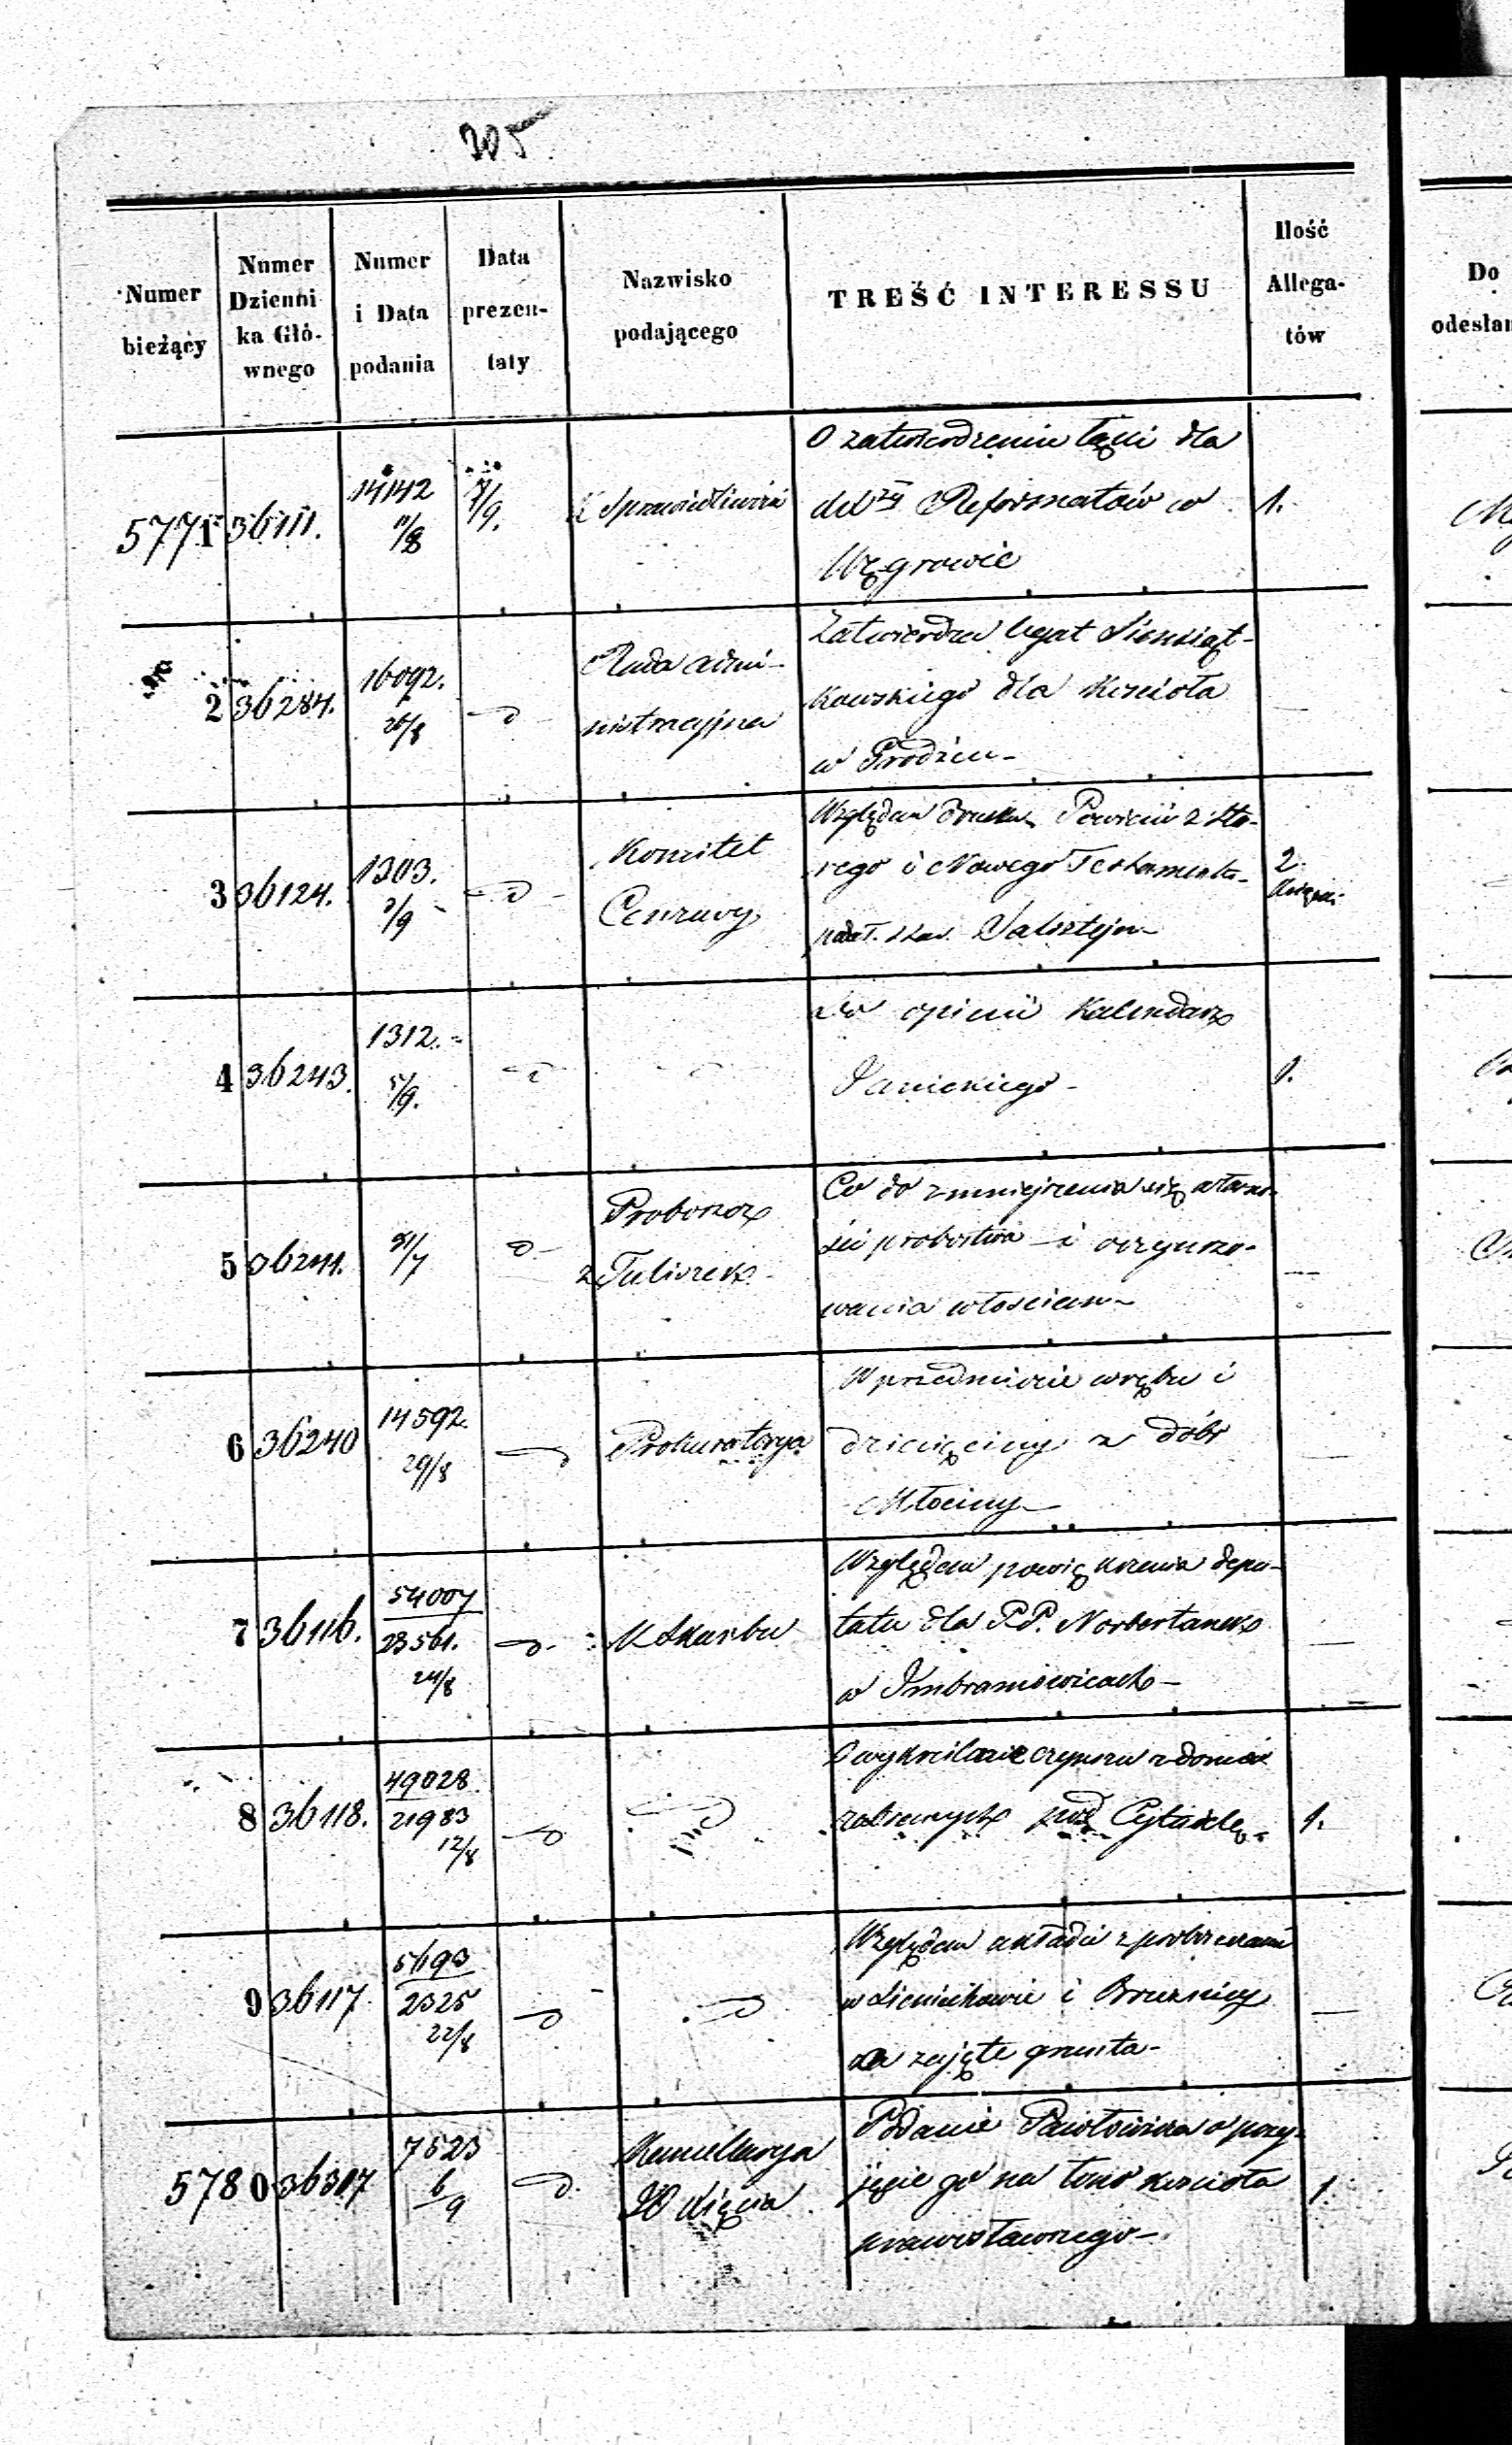 205
Numer bieżący
Numer Dzienni- ka Głó- wnego
Numer i Data podania
Data prezen- taty
Nazwisko podającego
TREŚĆ INTERESSU
Ilość Allega- tów
Do
odesłan
5771 36111. 14142 11/8 7/9. K Sprawiedliwości
O zatwierdzeniu łąki dla
Reformatów w 1.
Węgrowie
2 36284. 16092. 26/8 Rada admi-
nistracyjna
Zatwierdza legat
kowskiego dla kościoła
w Grodźcu
3 36124. 1303. 3/9 Komitet
Cenzury
Względem druku Powieści z Sta-
rego i Nowego Testamentu 2.
4 36243. 1312. 5/9.
do opinii Kalendarz
Janickiego 1.
5 36241. 31/7 Proboszcz
z Tuliszek
Co do zmniejszenia się własno-
ści probostwa i oczynszo-
wania włościan
6 36240 14592. 29/8 Prokuratorya
W przedmiocie wrębu i
dziesięciny z dóbr
Młociny
7 36116. 54007 23561. 24/8 K Skarbu
Względem powiększenia depu-
tatu dla P.P. Norbertanek
w Imbramowicach
8 36118. 49028 21983 12/8
O wykreślenie czynszu z domów
zabranych pod Cytadelę 1.
9 36117. 2325 22/8
Względem układu z proboszczami
w i Brzeźnicy
za zajęte grunta
5780 36307 7523 6/9 Kancellarya
JO Księcia
Podanie Pawłowicza o przy-
jęcie go na łono kościoła 1.
prawosławnego